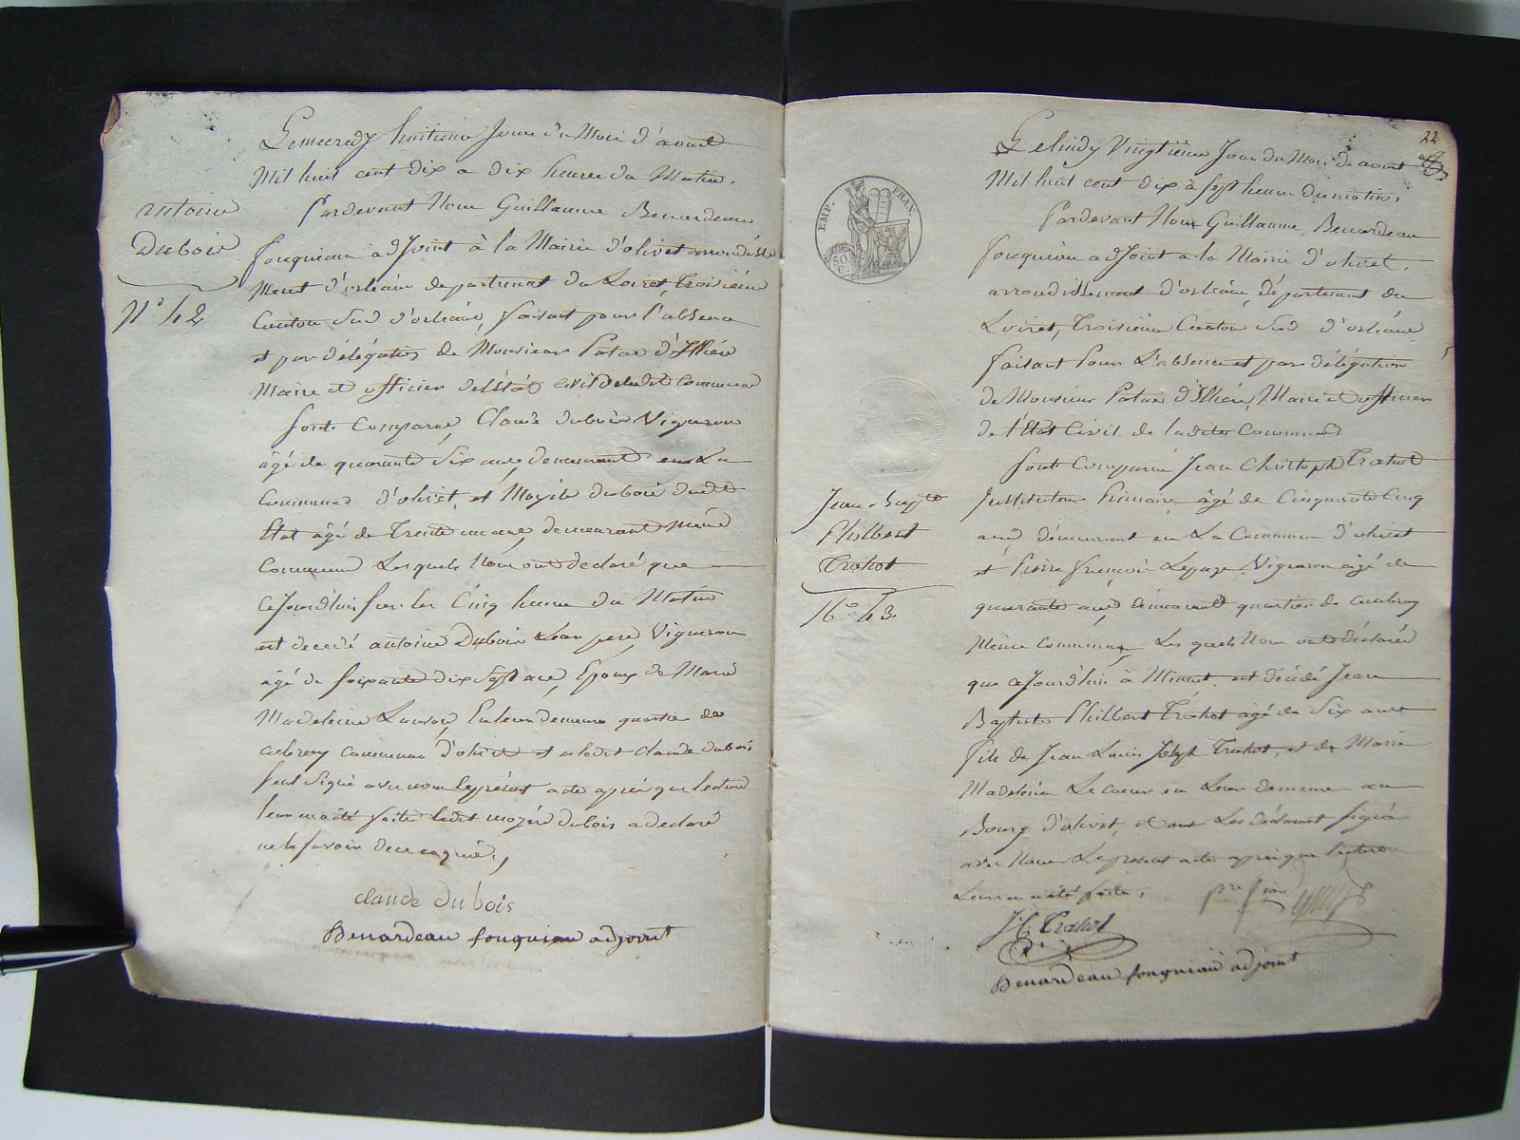 Le mecredy huitieme Jour du Mois d'aout
Mil huit cent dix a dix heures du Matin.
antoine
Dubois
N° 42
Pardevant Nous Guillaume Benardeau
fouquiau adJoint à la Mairie d'olivet arrondisse
Ment d'orleans departement du Loiret, troisième
Canton Sud d'orleans, faisant pour l'absence
et par délégation de Monsieur Patas d'Illiers
Maire et officier de l'état civil de ladite Commune
sont Comparus, Claude dubois Vigneron
âgé de quarante Six ans, demeurant en La
Commune d'olivet, et Moyse dubois dudit
Etat âgé de Trente un ans, demeurant Même
Commune Lesquels Nous ont declaré que
ceJourd'hui sur les Cinq heures du Matin
est decedé antoine Dubois Leur pere, Vigneron
âgé de soixante dix Sept ans, Epoux de Marie
Madeleine demeure quartier de
commune d'olivet et a ledit Claude dubois
seul Signé avec nous le present acte après que lecture
leur en a été faite ledit moyse dubois a declaré
ne le savoir de ce enquis.
claude dubois
Benardeau fouquiau adjoint
22
EMP. FRAN.
50
Le lundy Vingtième Jour du Mois de aout
Mil huit cent dix à sept heures du matin.
Pardevant Nous Guillaume Benardeau
fouquiau adJoint a la Mairie d'olivet,
arrondissement d'orleans, département du
Loiret, Troisième Canton Sud d'orleans
faisant Pour L'absence et par délégation
de Monsieur Patas d'Illiers, Maire et officier
de l'état Civil de ladite Commune
Jean Baptte
Philbert
Trahot
N° 43.
sont Comparus Jean Christoph Trahot
Instituteur Primaire, âgé de Cinquante Cinq
ans demeurant en La Commune d'olivet
et Pierre françois Lepage Vigneron âgé de
quarante ans, demeurant quartier de
Même Commune, Les quels Nous ont déclarés
que ceJourd'hui à Minuit est décédé Jean
Baptiste Philbert Trahot âgé de Six ans
fils de Jean Louis Trahot, et de Marie
Madeleine Le coeur en Leur demeure au
Bourg d'olivet, et ont Les déclarant signé
avec Nous Le present acte après que lecture
Leur en a été faite.
JC Trahot
Benardeau fouquiau adjoint